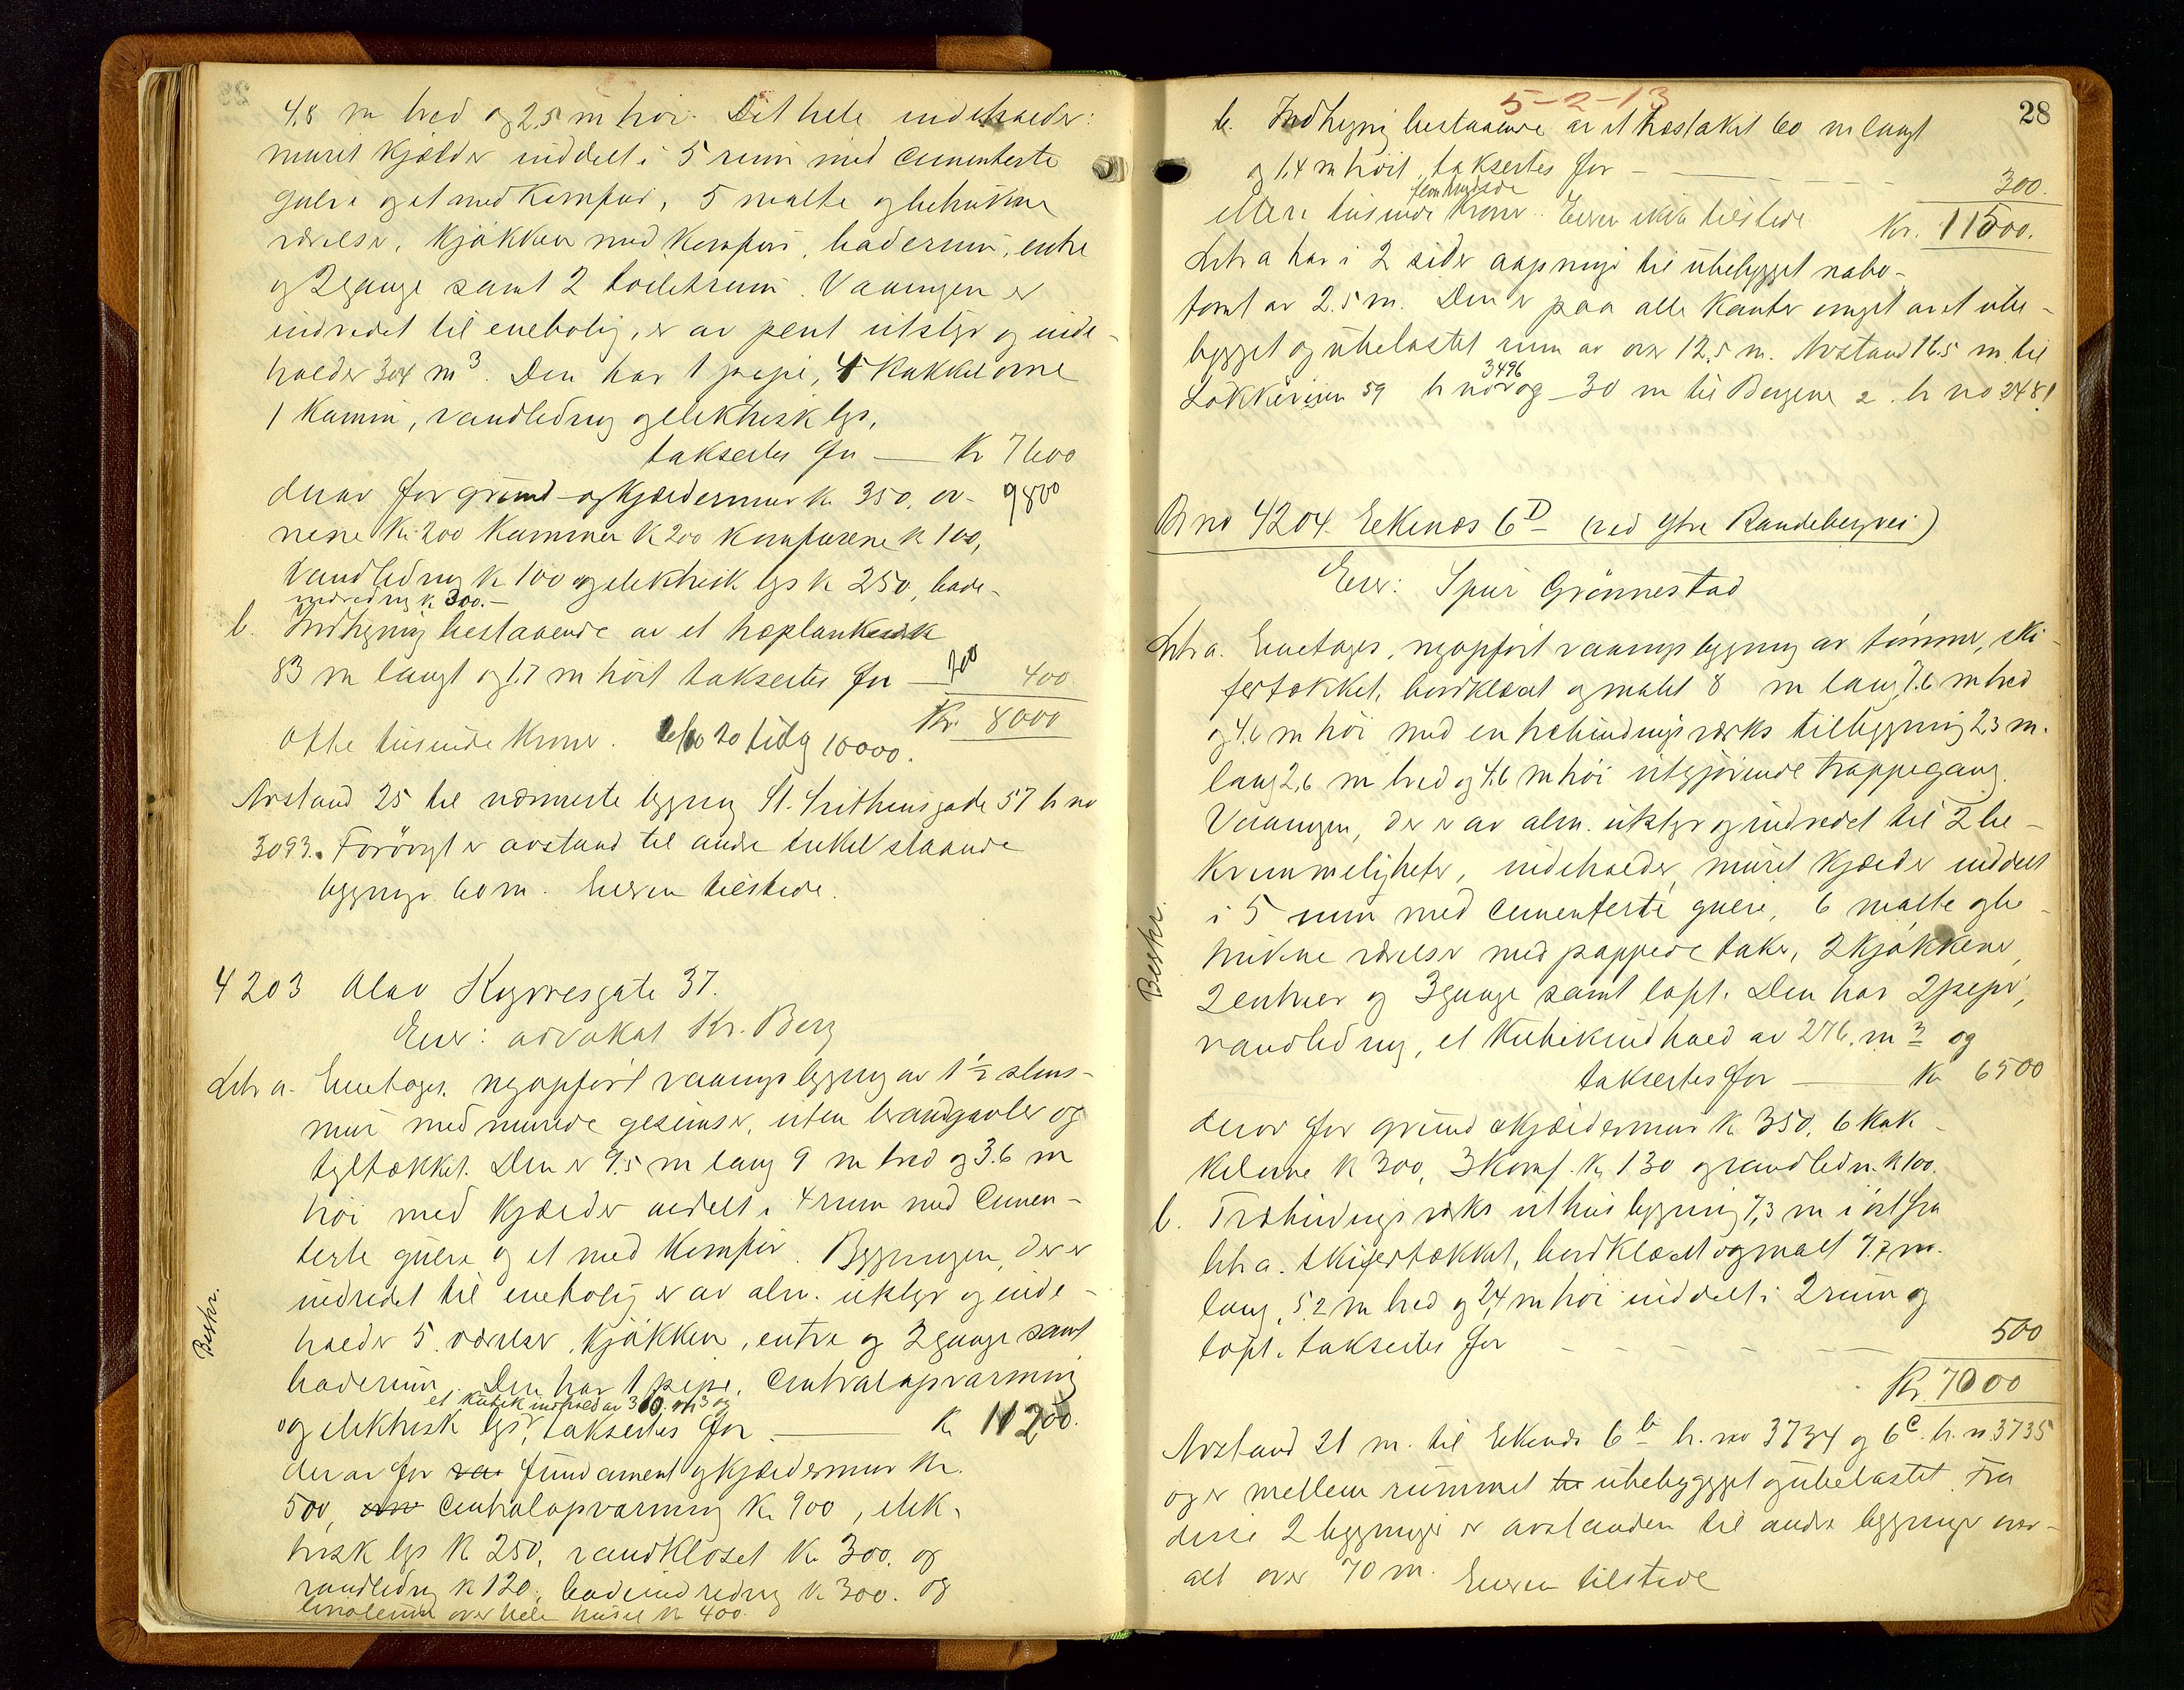 4.8 m bred og 2.5 m höi. Det hele indeholder:
muret kjælder inddelt i 5 rum med cementerte
gulve og et med komfur, 5 malte og betrukne
værelser, kjökken med komfur, baderum, entre
og 2 gange samt 2 toiletrum. Vaaningen er
indredet til enebolig, er av pent utstyr og inde-
holder 304 m³. Den har 1 pipe, 4 kakkelovne
1 kamin, vandledning og elektrisk lys,
taksertes for — Kr 7600
derav for grund- og kjældermur kr. 350. ov- 9800
nene Kr. 200 kaminen kr 200 komfurene kr 100,
vandledning kr 100 og elektrisk lys kr 250, bade-
indredning kr 300.-
b. Indhegning bestaaende av et træplankestak
83 m langt og 1.7 m höit taksertes for — 200 400
Kr. 8000
otte tusinde kroner. 20 tidlg 10000.
Avstand 25 til nærmeste bygning St. Svithunsgade 57 br no
3093. Forövrigt er avstand til andre enkelstaaende
bygninger 60 m. Eieren tilstede.
4203 Olav Kyrresgate 37.
Eier: advokat Kr. Berg
Litr a. Enetages, nyopfört vaaningsbygning av 1½ stens-
mur med murede gesimser, uten brandgavler og
tegltækket. Den er 9.5 m lang 9 m bred og 3.6 m
höi med kjælder avdelt i 4 rum med cemen-
terte gulve og et med komfur. Bygningen, der er
indredet til enebolig er av alm. utstyr og inde-
holder 5 værelser, kjökken, entre og 2 gange samt
baderum. Den har 1 pipe, Centralopvarmning
et kubikindhold av 310 m³ og
og elektrisk lys, taksertes for — Kr 11200.
derav for fundament og kjældermur Kr.
500, centralopvarmning Kr 900, elek-
trisk lys Kr 250, vandkloset Kr 300. og
vandledng kr 120, badeindredng Kr 300. og
linoleum over hele huset kr 400.
Beskr.
5-2-13
28
b. Indhegng bestaaende av et træstaket 60 m langt
og 1.4 m höit taksertes for - — - - - 300.
femhundrede
elleve tusinde kroner. Eieren ikke tilstede Kr. 11500.
Litr a har i 2 sider aapninger til ubebygget nabo-
tomt av 2.5 m. Den er paa alle kanter omgit av et ube-
bygget og ubelastet rum av over 12.5 m. Avstand 16.5 m til
3496
Lökkeveien 59 br no og 30 m til Bergene 2 br no 2481
Br no 4204. Eekenæs 6D (ved ytre Randebergvei)
Eier: Spur Grönnestad
Litr a. Enetages, nyopfört vaaningsbygning av tömmer, ski-
fertækket, bordklædt og malet 8 m lang 7.6 m bred
og 4.6 m höi med en træbindingsverks tilbygning 2.3 m.
lang 2.6 m bred og 4.6 m höi utgjörende trappegang.
Vaaningen, der er av alm. utstyr og indredet til 2 be-
kvemmeligheter, indeholder, muret kjælder inddelt
i 5 rum med cementerte gulve, 6 malte og be-
trukne værelser med pappede taker, 2 kjökkener,
2 entreer og 3 gange samt loft. Den har 2 piper,
vandledning, et kubikindhold av 276. m³ og
taksertes for — Kr 6500
derav for grund & kjældermur kr 350, 6 kak-
kelovne kr 300, 3 komf. kr 130 og vandledn. kr 100.
b. Træbindingsverks uthusbygning 7,3 m i öst fra
litr a. Skifertækket, bordklædt og malt 7.7 m.
lang, 5.2 m bred og 2,4 m höi inddelt i 2 rum og
loft. taksertes for - - - — 500
Kr. 7000
Avstand 21 m. til Ekenæs 6b br. no 3734 og 6c. br. n 3735
og er mellemrummet ubebygget og ubelastet. Fra
disse 2 bygninger er avstanden til andre bygninger over-
alt over 70 m. Eieren tilstede
Beskr.